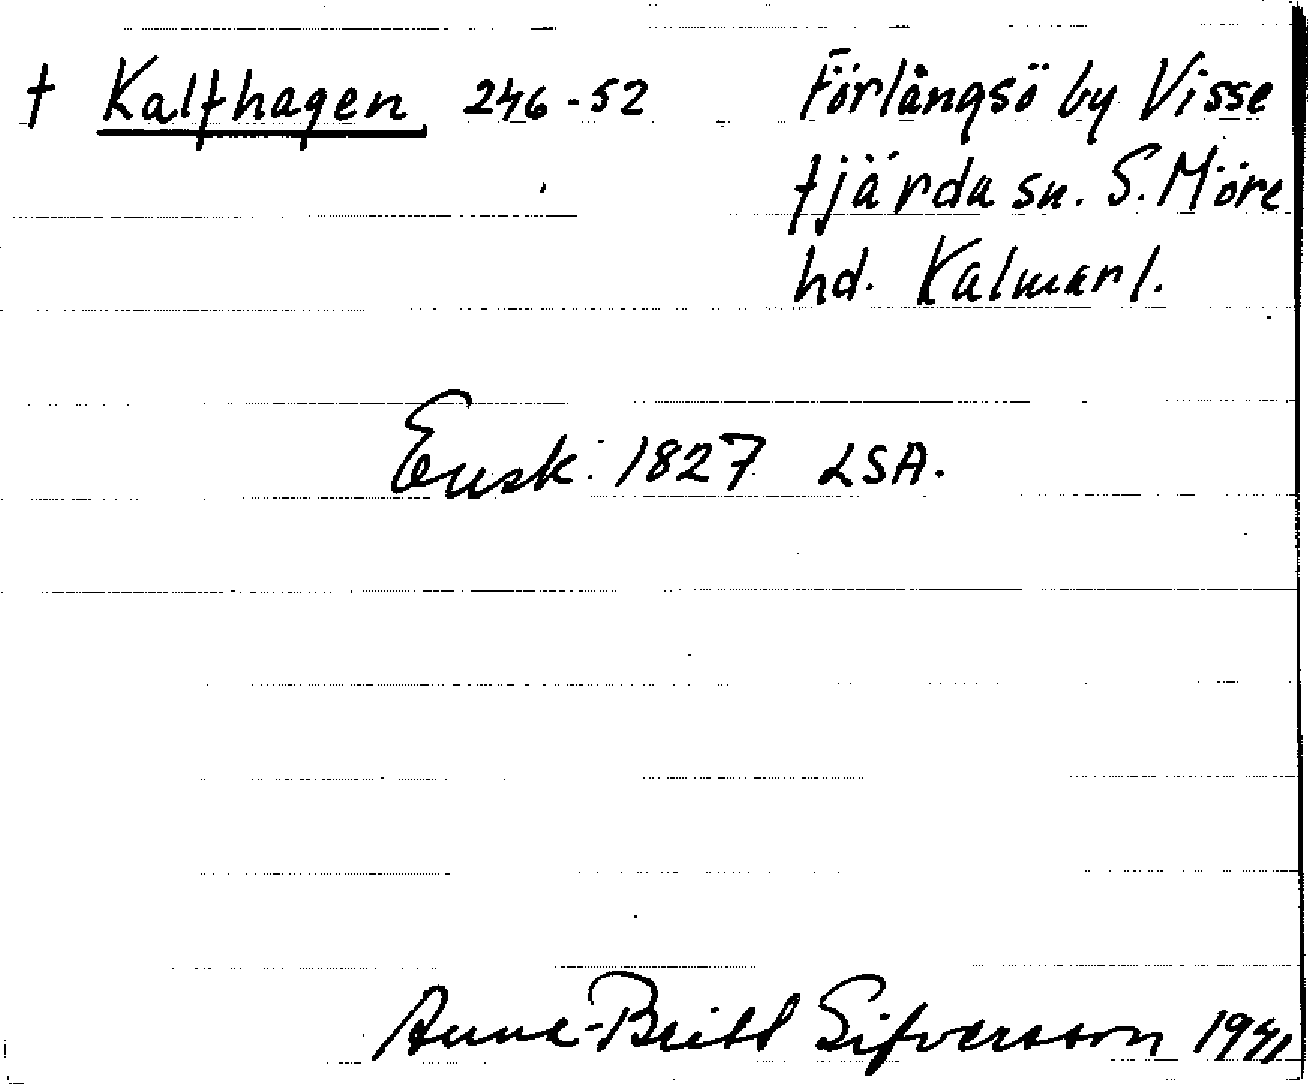 † Kalfhagen 246-52 Förlångsö by Visse
fjärda sn. S. Möre
hd. Kalmar l.
Ensk. 1827 LSA.
Anna-Britt Sifversson 1941